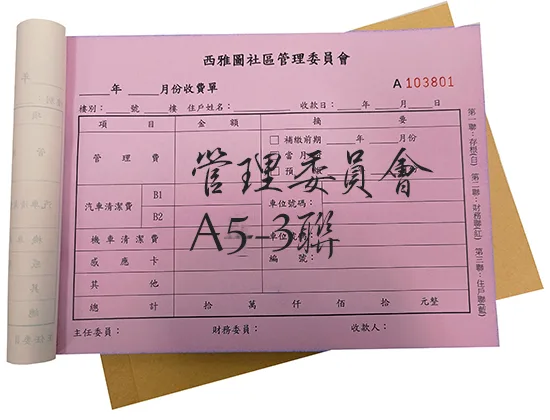 西雅圖社區管理委員會
年 月份收費單
A 103801
樓別: 號 樓 住戶姓名: 收款日: 年 月 日
項 目 金 額 摘 要
管 理 費
□ 補繳前期 年 月份
□ 當 月
□ 預
汽車清潔費 B1 車位號碼:
B2
機車清潔費 車位號碼:
感 應 卡 編 號:
其 他
總 計 拾 萬 仟 佰 拾 元整
主任委員: 財務委員: 收款人:
第一聯:存根(白) 第二聯:財務聯(紅) 第三聯:住戶聯(藍)
管理委員會
A5-3聯